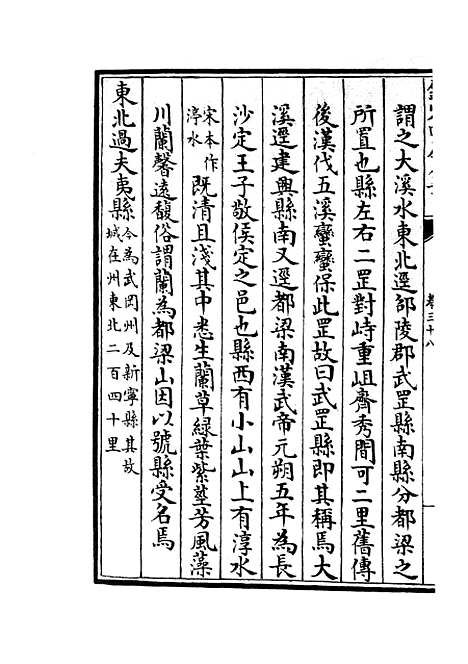 謂之大溪水東北逕邵陵郡武罡縣南縣分都梁之
所置也縣左右二罡對峙重岨齊秀間可二里舊傳
後漢伐五溪蠻蠻保此罡故曰武罡縣即其稱焉大
溪逕建興縣南又逕都梁南漢武帝元朔五年為長
沙定王子敬侯定之邑也縣西有小山山上有淳水
宋本作
渟水
既清且淺其中悉生蘭草綠葉紫莖芳風藻
川蘭馨遠馥俗謂蘭為都梁山因以號縣受名焉
東北過夫夷縣
今為武岡州及新寧縣其故
城在州東北二百四十里
卷三十八